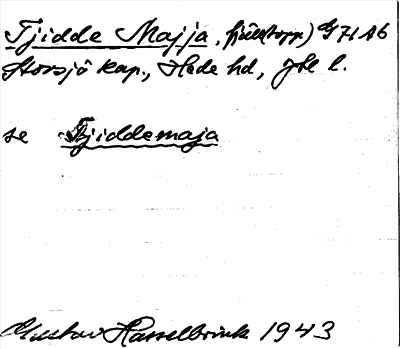 Tjidde Majja, fjäll(topp) G 71 Ab
Storsjö kap., Hede hd, Jtl l.
se Tjiddemaja
Gustav Hasselbrink 1943